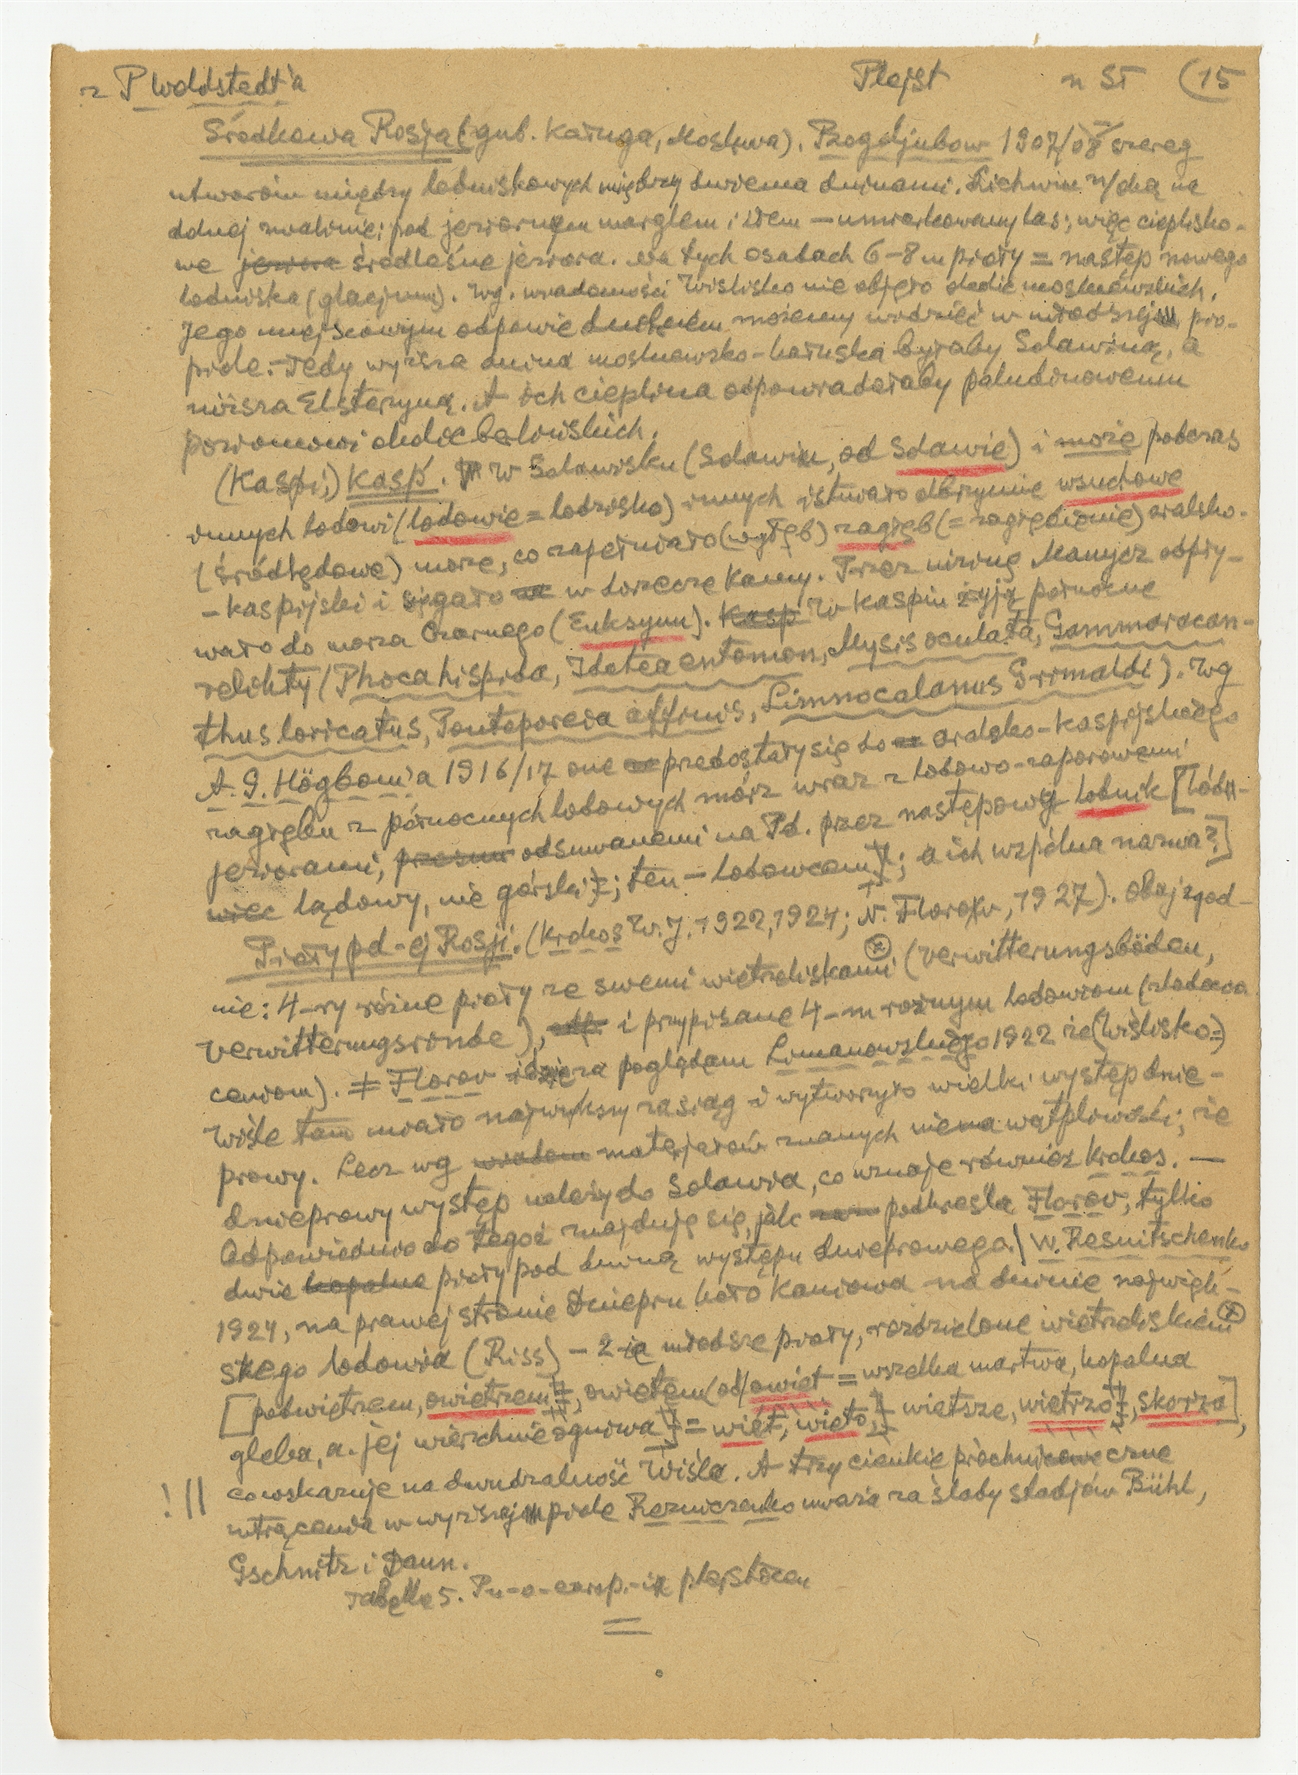 z P Woldstedt'a Plejst n ST (15
Środkowa Rosja (gub. Kaługa, Moskwa). Bogoljubow 1907/08 szereg
utworów między lodniskowych między dwiema dninami. Lichwin n/Oką na
dolnej zwalinie; pod jeziornym marglem i iłem – umiarkowany las; więc cieplisko-
we jeziora śródleśne jeziora. Na tych osadach 6–8 m pioły = następ nowego
lodniska (glacjum). Wg. wiadomości Wislisko nie objęło okolic moskiewskich.
Jego miejscowym odpowiednikiem możemy widzieć w młodszej pio-
piole. – Tedy wyższa dnina moskiewsko-kałuska byłaby Solawiną, a
niższa Elsteryną. A ich cieplina odpowiadałaby paludinowemu
poziomowi okolic berlińskich.
(Kaspi,) Kasp. W Solawisku (Solawiu, od Solawie) i może podczas
innych lodowi (lodowie = lodzisko) innych istniało olbrzymie wsuchowe
(śródlądowe) morze, co zapełniało (wgłęb) zagłęb (= zagłębienie) aralsko-
-kaspijski i sięgało w dorzecze Kamy. Przez nizinę Manycz odpły-
wało do morza Czarnego (Euksynu). Kasp W Kaspiu żyją północne
relikty (Phoca hispida, Idotea entomon, Mysis oculata, Gammaracan-
thus loricatus, Pontoporeia affinis, Limnocalanus Grimaldi). Wg
A. G. Högbom'a 1916/17 one przedostały się do aralsko-kaspijskiego
zagłębu z północnych lodowych mórz wraz z lodowo-zaporowemi
jeziorami, odsuwanemi na Pd. przez następowy lodnik [lód
więc lądowy, nie górski; ten – lodowcem]; a ich wspólna nazwa?]
Pioły pd-ej Rosji. (Krokos W. J. 1922, 1924; N. Florov, 1927). Obaj zgod-
nie: 4-ry różne pioły ze swemi wietrzliskami (x) (Verwitterungsböden,
Verwitterungsrinde), i przypisane 4-m różnym lodowiom (zlodowa
ceniom). ≠ Florov idzie za poglądem Limanowskiego 1922 że (Wiślisko=)
Wiśle tam miało największy zasiąg i wytworzyło wielki występ dnie-
prowy. Lecz wg materjałów znanych niema wątpliwości, że
dnieprowy występ należy do Solawia, co uznaje również Krokos. —
Odpowiednio do tegoż znajdują się, jak podkreśla Florov, tylko
dwie kopalne pioły pod dniną występu dnieprowego.) W. Resnitschenko
1924, na prawej stronie Dniepru koło Kaniowa na dninie najwięk-
skego lodowia (Riss) – 2-ie młodsze pioły, rozdzielone wietrzliskiem (x)
[podwietrzem, owietrzem, owietem (od owiet = wszelka martwa, kopalna
gleba, a jej wierzchnie ogniwa = wiet, wieto, wietsze, wietrzo, skorza],
co wskazuje na dwudzialność Wisła. A trzy cienkie próchniczne
! || wtrącenia w wyższej piole Rezniczenko uważa za ślady stadjów Bühl,
Gschnitz i Daun.
Tabelka 5. Pn-o-europ.-i plejstocen